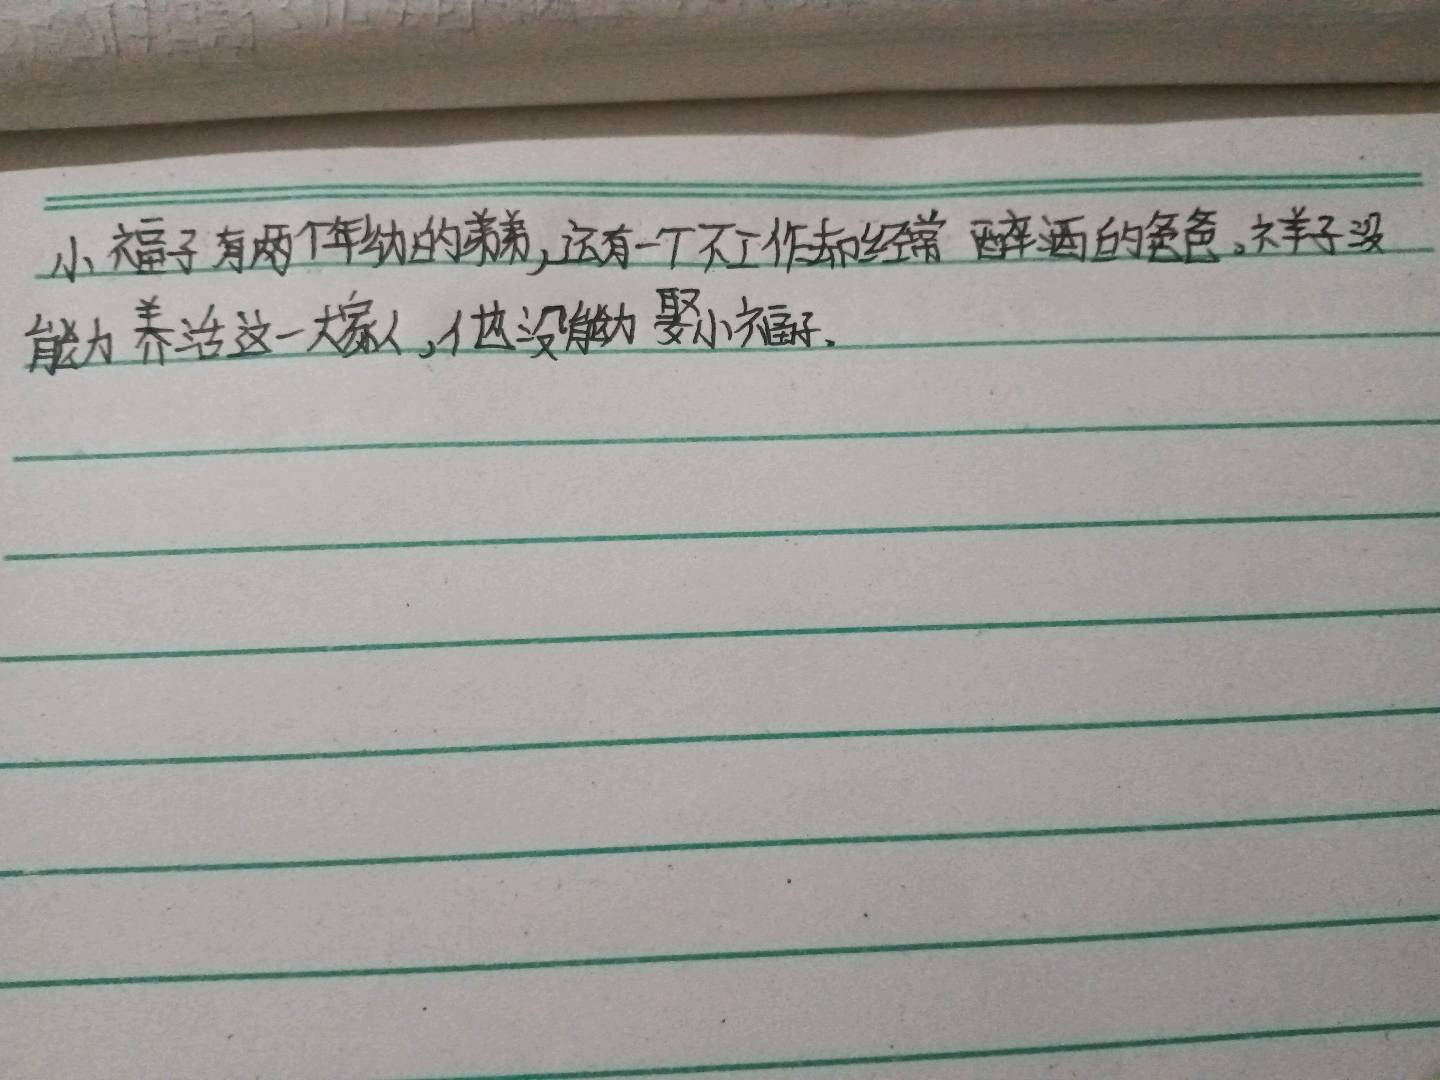 小福子有两个年幼的弟弟,还有一个不工作却经常醉酒的爸爸。祥子没
能力养活这一大家人,他没能力娶小福子。